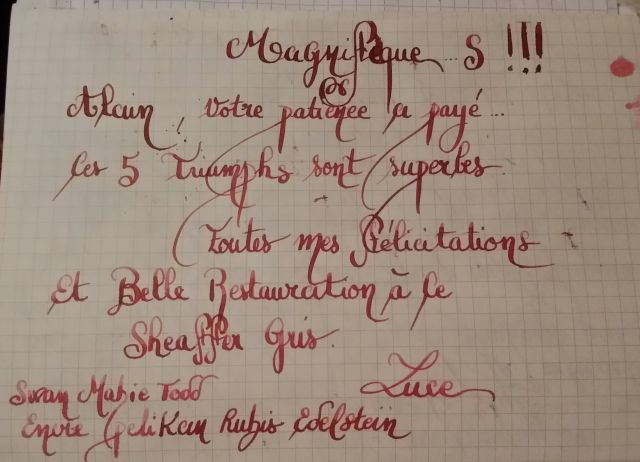 Magnifique ... S !!!
Alain, ! Votre patience a payé ...
Ces 5 Triumphs sont superbes
Toutes mes félicitations
Et Belle Restauration à ce
Sheaffer Gris.
Luce
Swan Mabie Todd
Encre Pelikan Rubis Edelstein